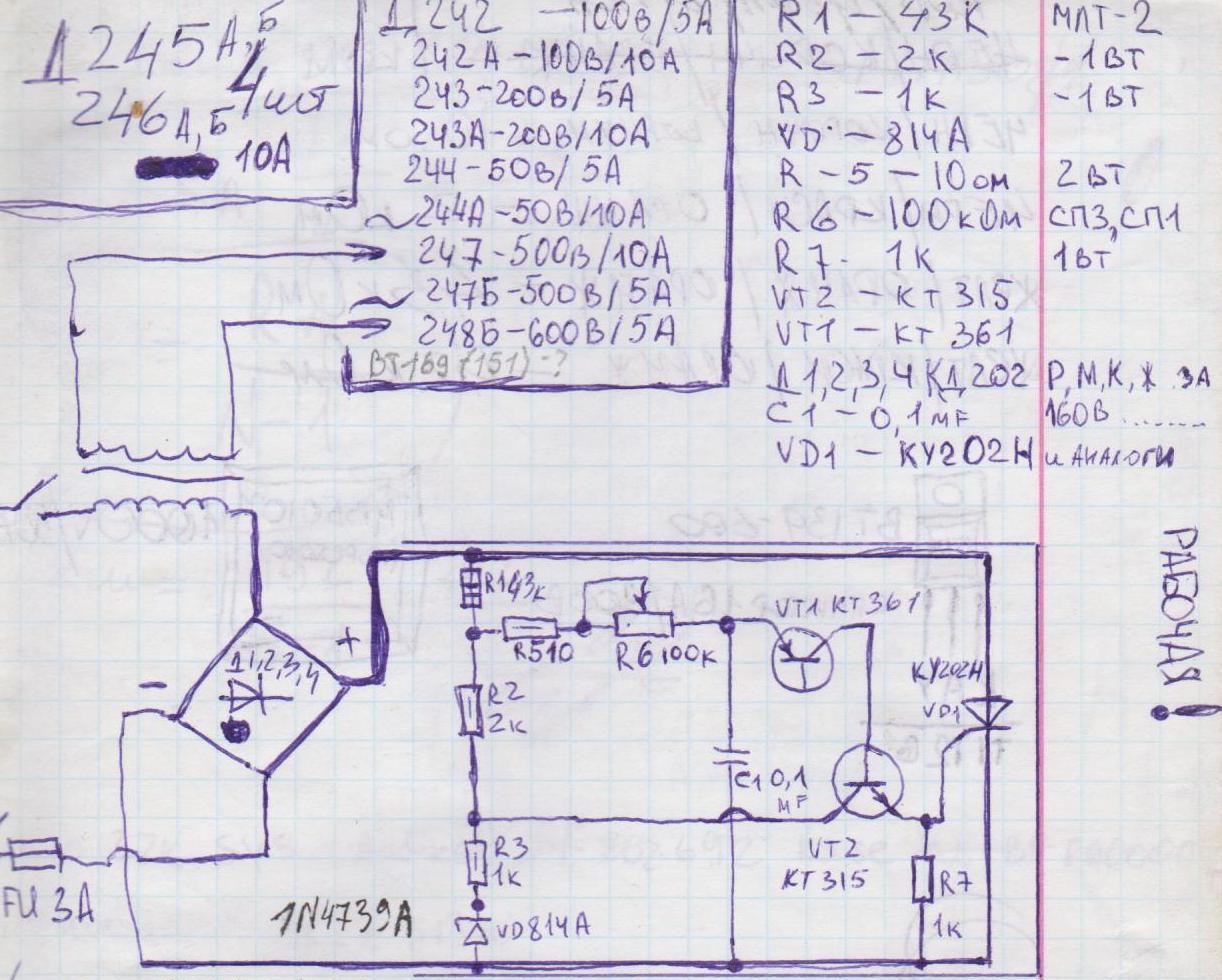 Д245 А,Б
246 А,Б
4 шт
10А
Д 242 -100в/5А
242А-100В/10А
243-200в/5А
243А-200В/10А
244-50в/5А
244А-50В/10А
247-500в/10А
247Б-500В/5А
248Б-600В/5А
ВТ169 (151) -?
R1 - 43К МЛТ-2
R2 - 2К -1ВТ
R3 - 1К -1ВТ
VD - 814А
R-5-10ом 2ВТ
R6-100кОм СП3,СП1
R7- 1К 1ВТ
VT2-КТ 315
VT1-КТ 361
Д1,2,3,4 КД202 Р,М,К,Ж 3А
С1-0,1мF 160В ........
VD1-КУ202Н и АНАЛОГИ
РАБОЧАЯ!
R143к
R510
R6100к
VT1 КТ361
КУ202Н
VD1
+
Д1,2,3,4
-
R2
2к
С10,1
МF
R3
1к
VT2
КТ315
R7
1К
FU 3А
1N4739A
VD814А
ВТ139-600